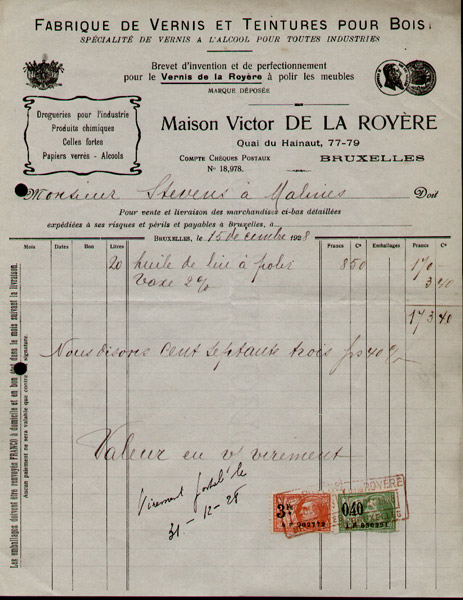 FABRIQUE DE VERNIS ET TEINTURES POUR BOIS
SPÉCIALITÉ DE VERNIS A L'ALCOOL POUR TOUTES INDUSTRIES
Brevet d'invention et de perfectionnement
pour le Vernis de la Royère à polir les meubles
MARQUE DÉPOSÉE
Drogueries pour l'industrie
Produits chimiques
Colles fortes
Papiers verrés - Alcools
Maison Victor DE LA ROYÈRE
Quai du Hainaut, 77-79
COMPTE CHÈQUES POSTAUX
No 18,978.
BRUXELLES
Monsieur Stevens à Malines Doit
Pour vente et livraison des marchandises ci-bas détaillées
expédiées à ses risques et périls et payables à Bruxelles, a
BRUXELLES, le 15 decembre 1928
Mois Dates Bon Litres Francs Cs Emballages Francs Cs
20 huile de lin à polir 850 170 -
taxe 2% 3 40
173 40
Nous disons cent septante trois frs 40 %
Valeur en v/ virement
Virement postal le
31-12-28
3
0.40
LA ROYÈRE
BRUXELLES
Les emballages doivent être renvoyés FRANCO à domicile et en bon état dans le mois suivant la livraison.
Aucun paiement ne sera valable que contre signature